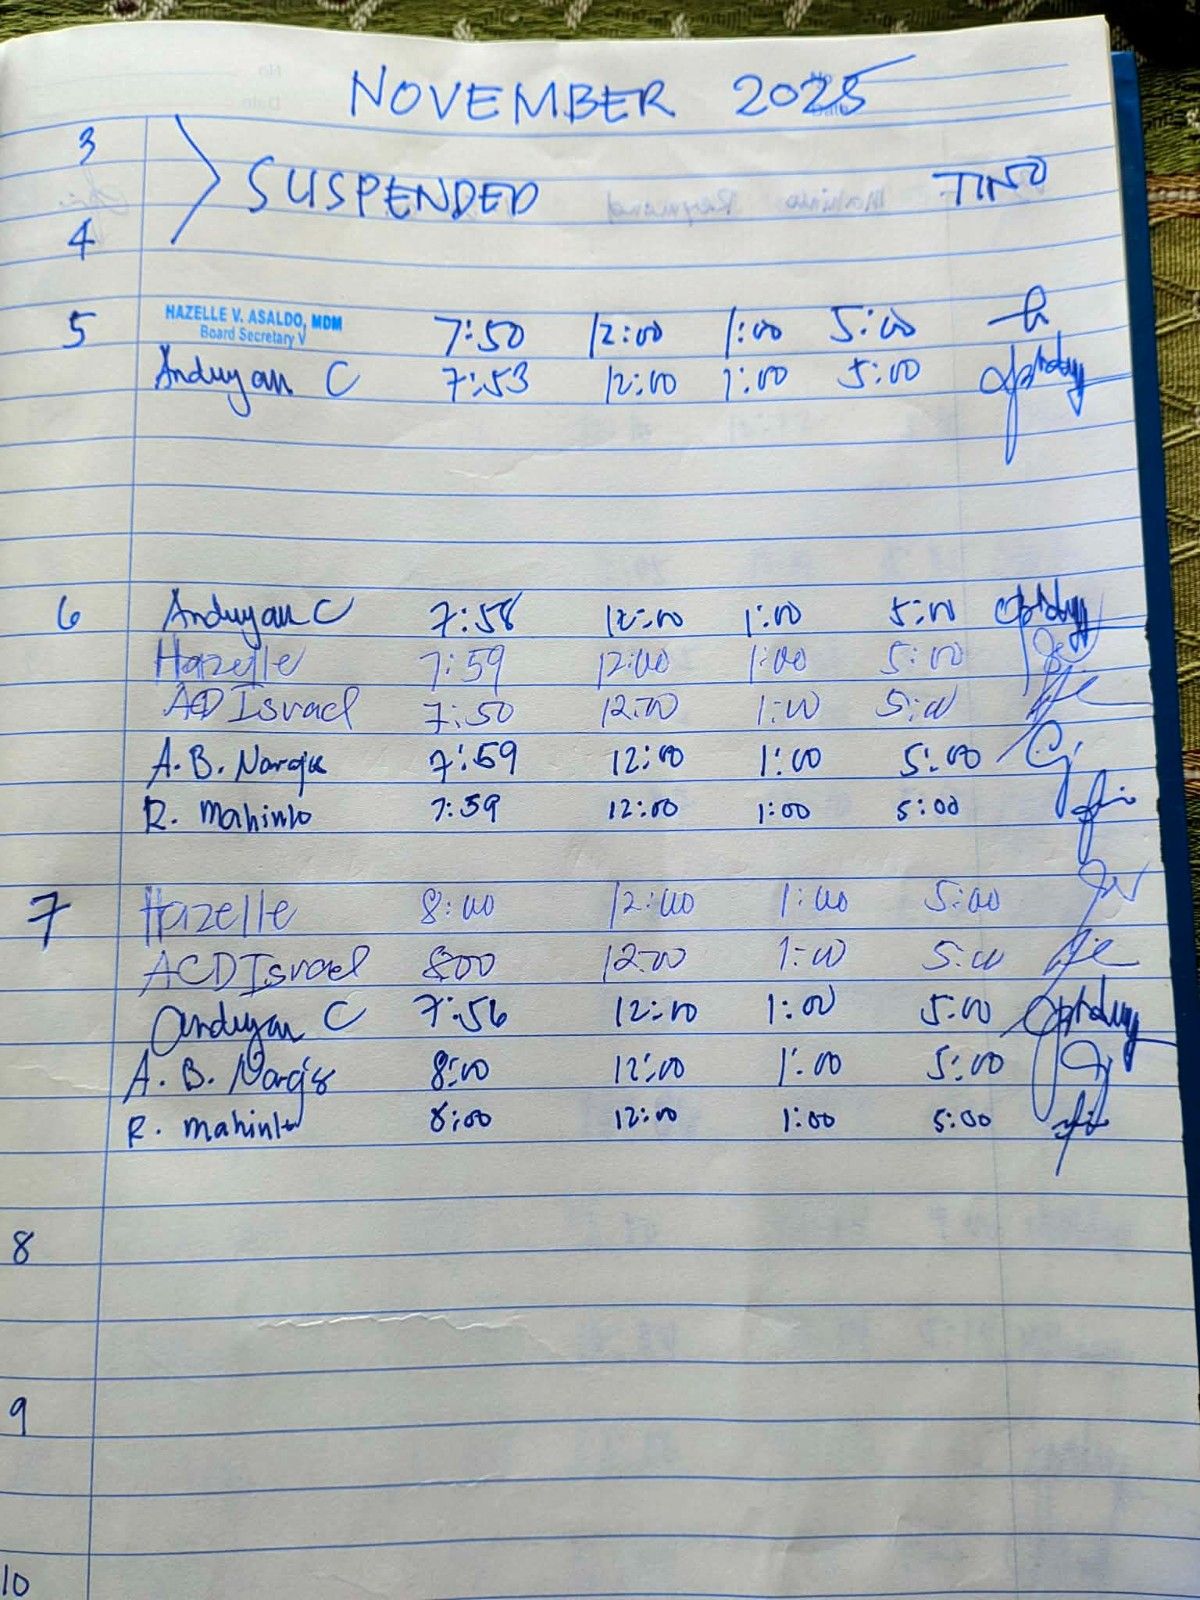 NOVEMBER 2025
3
SUSPENDED TINO
4
5 HAZELLE V. ASALDO, MDM
Board Secretary V
7:50 12:00 1:00 5:00
Anduyan C 7:53 12:00 1:00 5:00
6 Anduyan C 7:58 12:00 1:00 5:00
Hazelle 7:59 12:00 1:00 5:00
ACD Israel 7:50 12:00 1:00 5:00
A. B. 7:59 12:00 1:00 5:00
R. Mahinlo 7:59 12:00 1:00 5:00
7 Hazelle 8:00 12:00 1:00 5:00
ACD Israel 800 12:00 1:00 5:00
Anduyan C 7:56 12:00 1:00 5:00
A. B. 8:00 12:00 1:00 5:00
R. Mahinlo 8:00 12:00 1:00 5:00
8
9
10